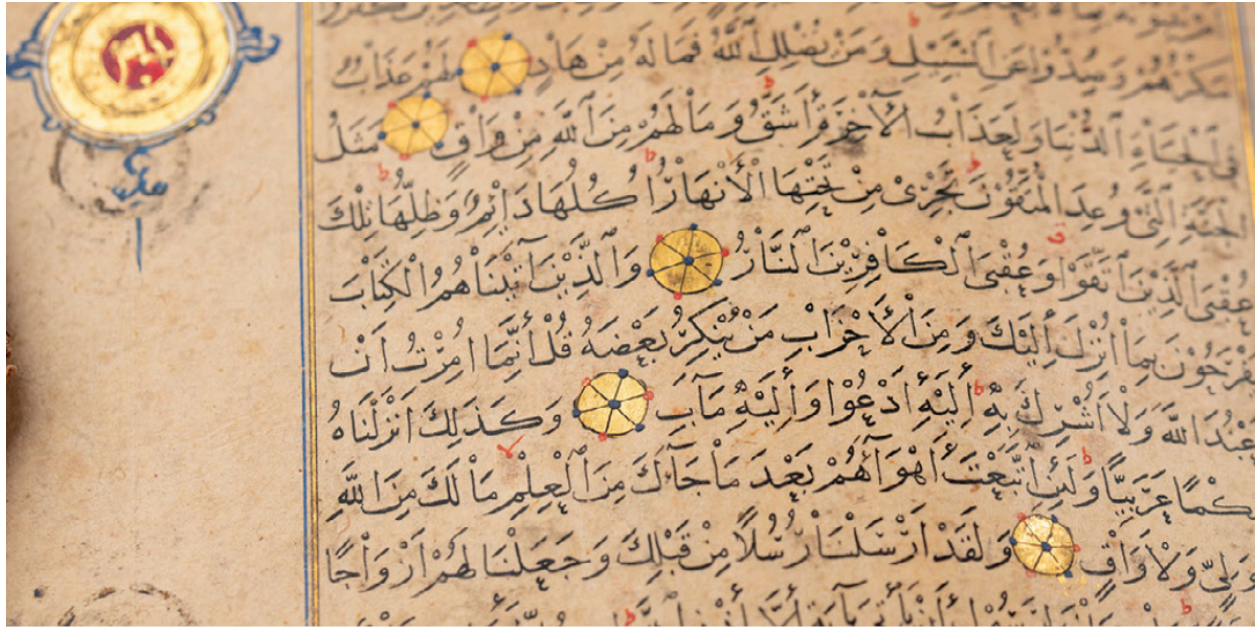 مَكْرُهُمْ وَصُدُّوا عَنِ السَّبِيلِ وَمَنْ يُضْلِلِ اللَّهُ فَمَا لَهُ مِنْ هَادٍ لَهُمْ عَذَابٌ
فِي الْحَيَاةِ الدُّنْيَا وَلَعَذَابُ الْآخِرَةِ أَشَقُّ وَمَا لَهُمْ مِنَ اللَّهِ مِنْ وَاقٍ مَثَلُ
الْجَنَّةِ الَّتِي وُعِدَ الْمُتَّقُونَ تَجْرِي مِنْ تَحْتِهَا الْأَنْهَارُ أُكُلُهَا دَائِمٌ وَظِلُّهَا تِلْكَ
عُقْبَى الَّذِينَ اتَّقَوْا وَعُقْبَى الْكَافِرِينَ النَّارُ وَالَّذِينَ آتَيْنَاهُمُ الْكِتَابَ
يَفْرَحُونَ بِمَا أُنْزِلَ إِلَيْكَ وَمِنَ الْأَحْزَابِ مَنْ يُنْكِرُ بَعْضَهُ قُلْ إِنَّمَا أُمِرْتُ أَنْ
أَعْبُدَ اللَّهَ وَلَا أُشْرِكَ بِهِ إِلَيْهِ أَدْعُوا وَإِلَيْهِ مَآبِ وَكَذَلِكَ أَنْزَلْنَاهُ
حُكْمًا عَرَبِيًّا وَلَئِنِ اتَّبَعْتَ أَهْوَاءَهُمْ بَعْدَ مَا جَاءَكَ مِنَ الْعِلْمِ مَا لَكَ مِنَ اللَّهِ
وَلِيٍّ وَلَا وَاقٍ وَلَقَدْ أَرْسَلْنَا رُسُلًا مِنْ قَبْلِكَ وَجَعَلْنَا لَهُمْ أَزْوَاجًا